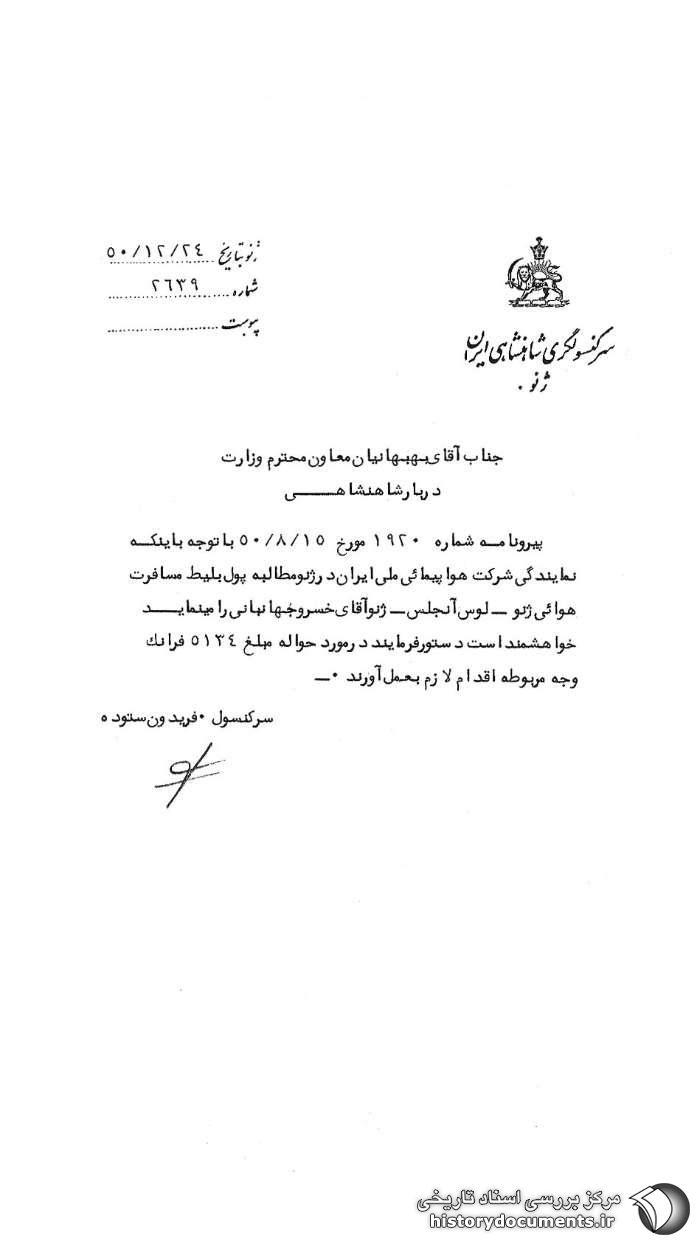 سرکنسولگری شاهنشاهی ایران
ژنو .
ژنو بتاریخ ۵۰/۱۲/۲٤
شماره ۲٦۳۹
پیوست
جناب آقای بهبهانیان معاون محترم وزارت
دربار شاهنشاهی
پیرو نامه شماره ۱۹۲۰ مورخ ۵۰/۸/۱۵ با توجه باینکه
نمایندگی شرکت هواپیمائی ملی ایران در ژنو مطالبه پول بلیط مسافرت
هوائی ژنو ــ لوس آنجلس ــ ژنو آقای خسرو جهانبانی را مینماید
خواهشمند است دستور فرمایند در مورد حواله مبلغ ۵۱۳٤ فرانك
وجه مربوطه اقدام لازم بعمل آورند ۰ــ
سرکنسول ۰ فریدون ستوده
مرکز بررسی اسناد تاریخی
historydocuments.ir